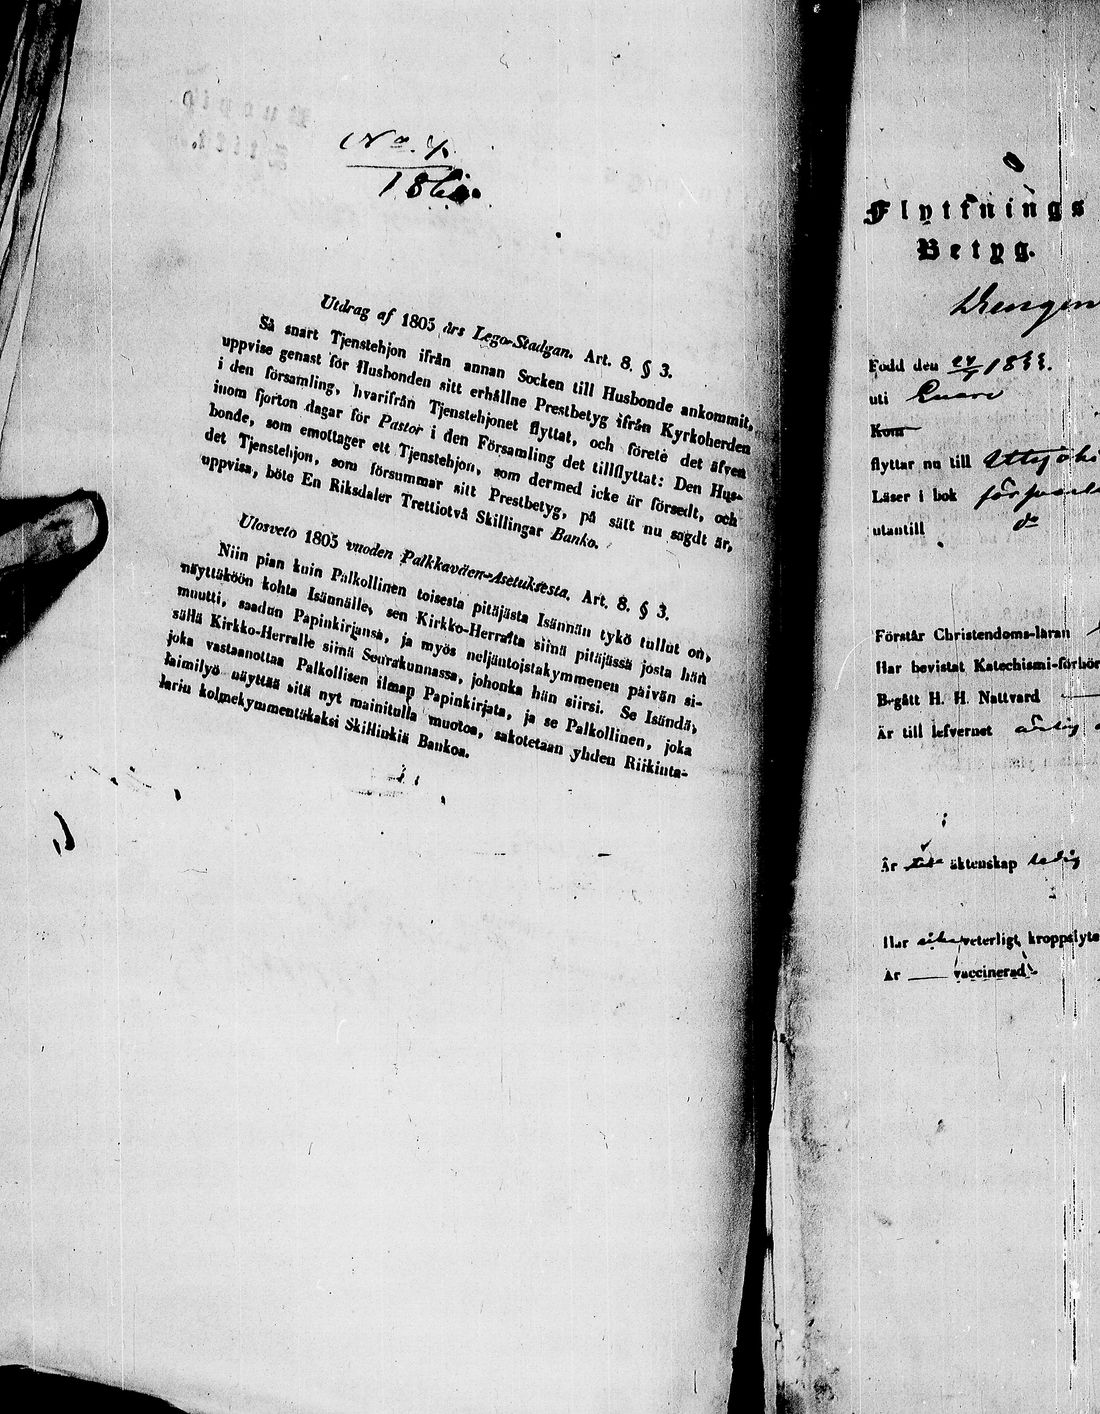 No. 4.
186
Utdrag af 1805 års Lego-Stadgan. Art. 8. § 3.
Så snart Tjenstehjon ifrån annan Socken till Husbonde ankommit,
uppvise genast för Husbonden sitt erhållne Prestbetyg ifrån Kyrkoherden
i den församling, hvarifrån Tjenstehjonet flyttat, och förete det äfven
inom fjorton dagar för Pastor i den Församling det tillflyttat: Den Hus-
bonde, som emottager ett Tjenstehjon, som dermed icke är försedt, och
det Tjenstehjon, som försummar sitt Prestbetyg, på sätt nu sagdt är,
uppvisa, böte En Riksdaler Trettiotvå Skillingar Banko.
Ulosveto 1805 vuoden Palkkaväen-Asetuksesta. Art. 8. § 3.
Niin pian kuin Palkollinen toisesta pitäjästä Isännän tykö tullut on,
näyttäköön kohta Isännälle, sen Kirkko-Herralta siinä pitäjässä josta hän
muutti, saadun Papinkirjansa, ja myös neljäntoistakymmenen päivän si-
sällä Kirkko-Herralle siinä Seurakunnassa, johonka hän siirsi. Se Isändä,
joka vastaanottaa Palkollisen ilman Papinkirjata, ja se Palkollinen, joka
laimilyö näyttää sitä nyt mainitulla muotoa, sakotetaan yhden Riikinta-
larin kolmekymmentäkaksi Skillinkiä Bankoa.
Flyttnings
Betyg.
Drengen
Född den 18
uti Enare
Kom
flyttar nu till Uttsjoki
Läser i bok
utantill do
Förstår Christendoms-läran
Har bevistat Katechismi-förhör
Begått H. H. Nattvard
Är till lefvernet
Är äktenskap ledig
Har veterligt kroppslyte
Är vaccinerad